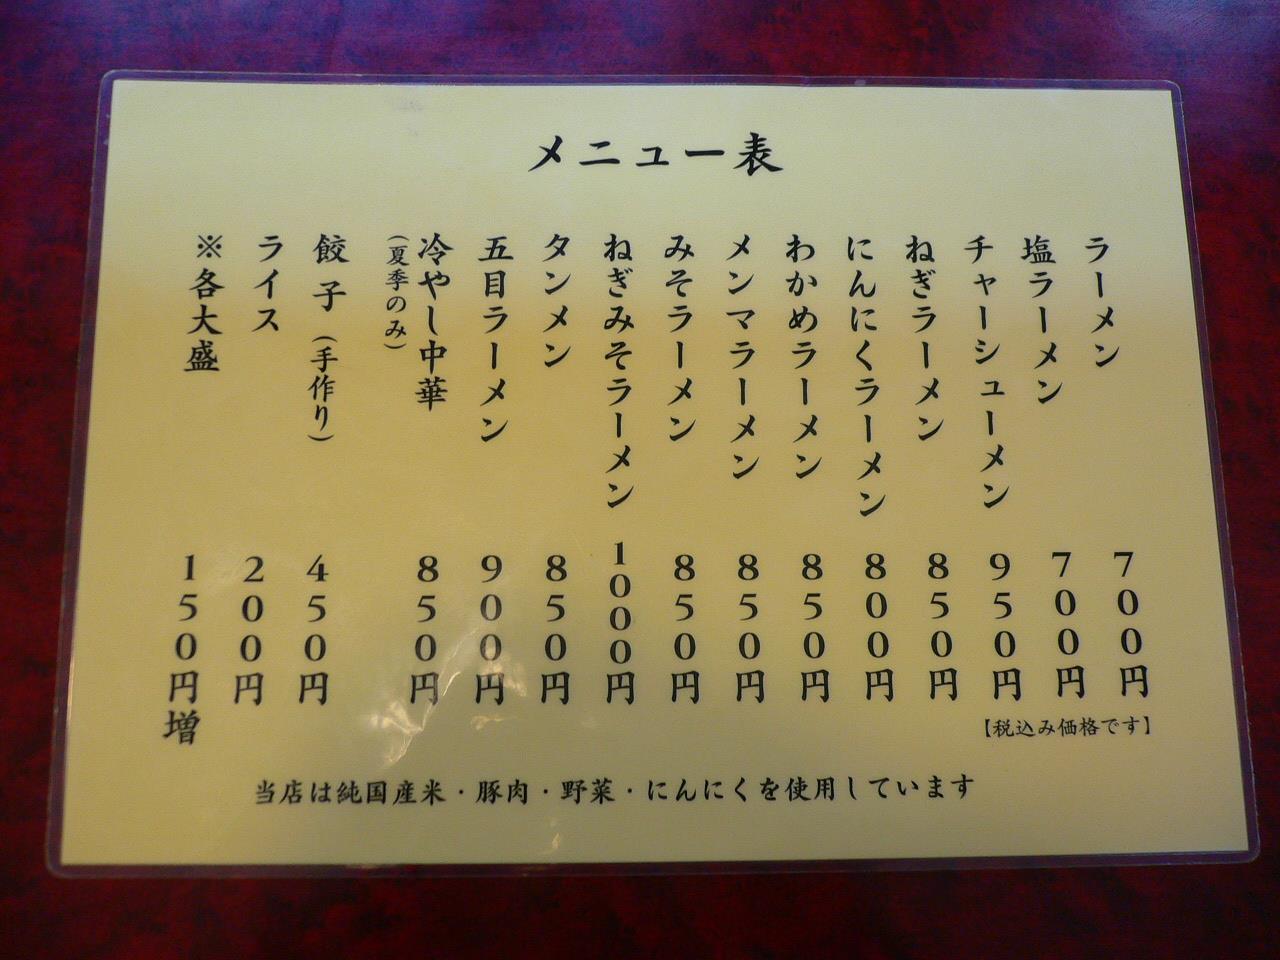 メニュー表
ラーメン 700円
塩ラーメン 700円
チャーシューメン 950円
ねぎラーメン 850円
にんにくラーメン 800円
わかめラーメン 850円
メンマラーメン 850円
みそラーメン 850円
ねぎみそラーメン 1000円
タンメン 850円
五目ラーメン 900円
冷やし中華 850円
(夏季のみ)
餃子(手作り) 450円
ライス 200円
※各大盛 150円増
【税込み価格です】
当店は純国産米・豚肉・野菜・にんにくを使用しています